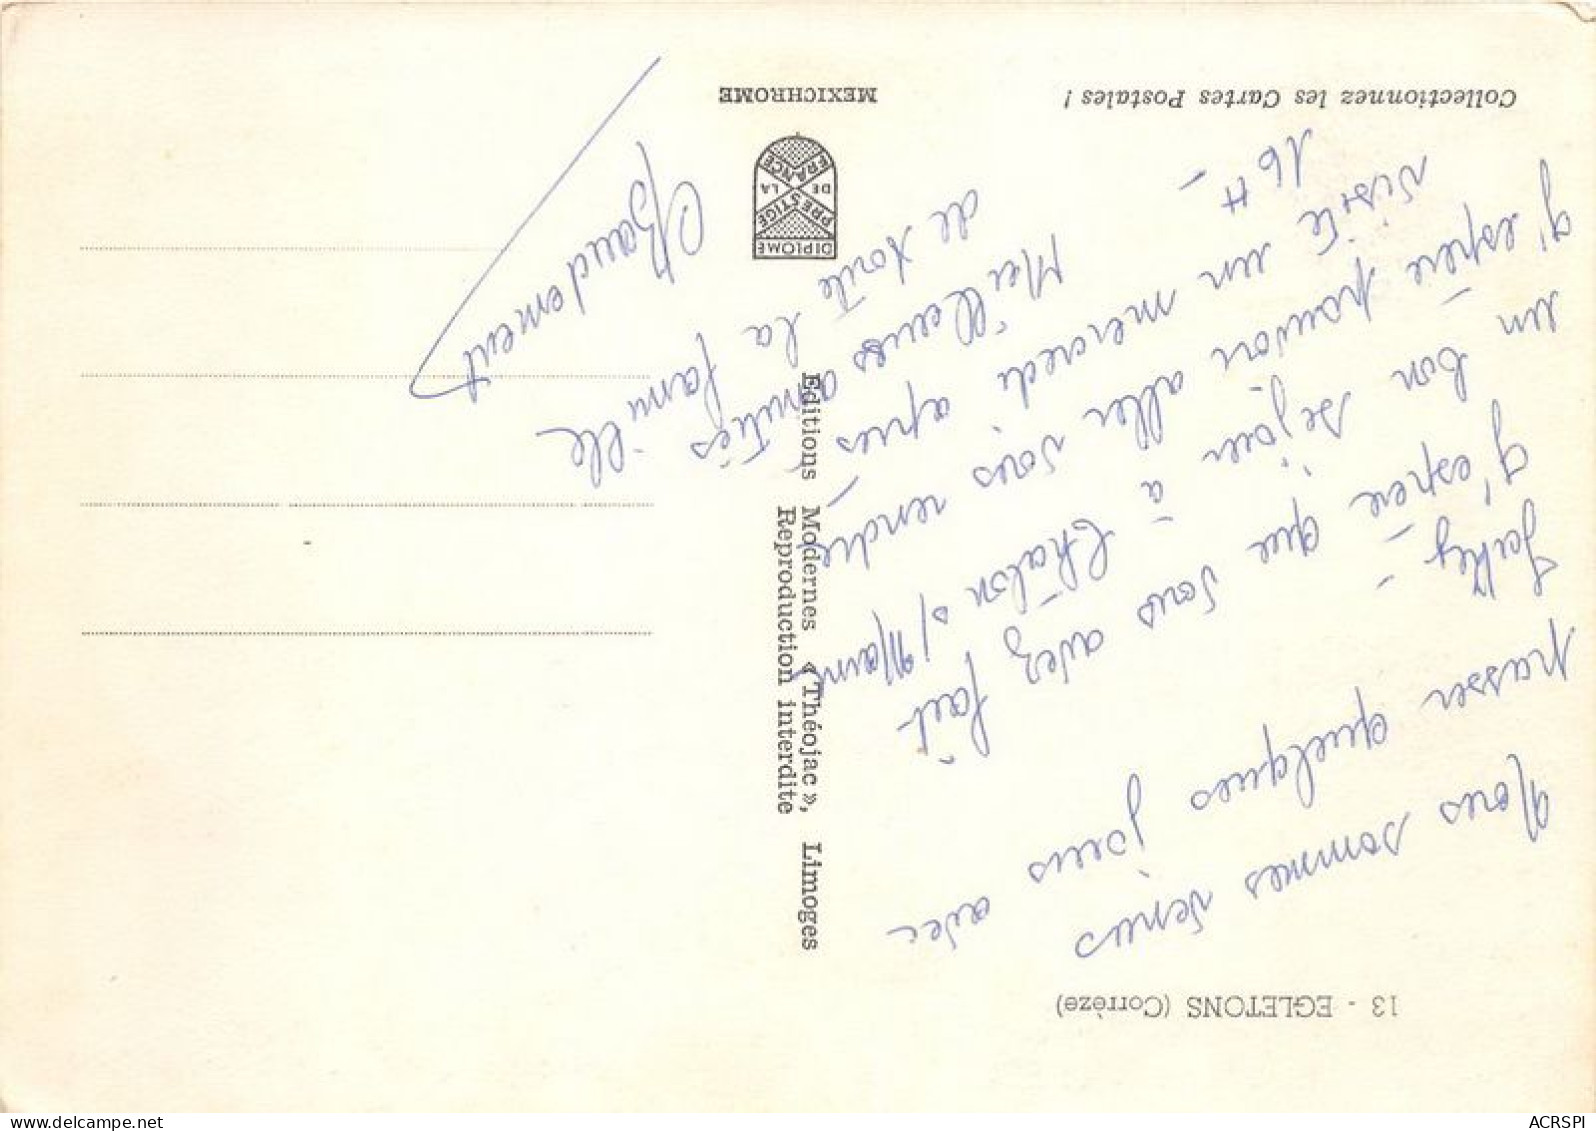 13 - EGLETONS (Corrèze)
Nous sommes venus
passer quelques jours avec
J'espère que vous avez fait
un bon séjour à Châlon s/Marne
J'espère pouvoir aller vous rendre
visite un mercredi après
16 H -
Meilleures amitiés
de toute la famille
Baudement
Collectionnez les Cartes Postales !
MEXICHROME
DIPLOME
PRESTIGE
DE LA
FRANCE
Editions Modernes « Théojac », Limoges
Reproduction interdite
ACRSPI